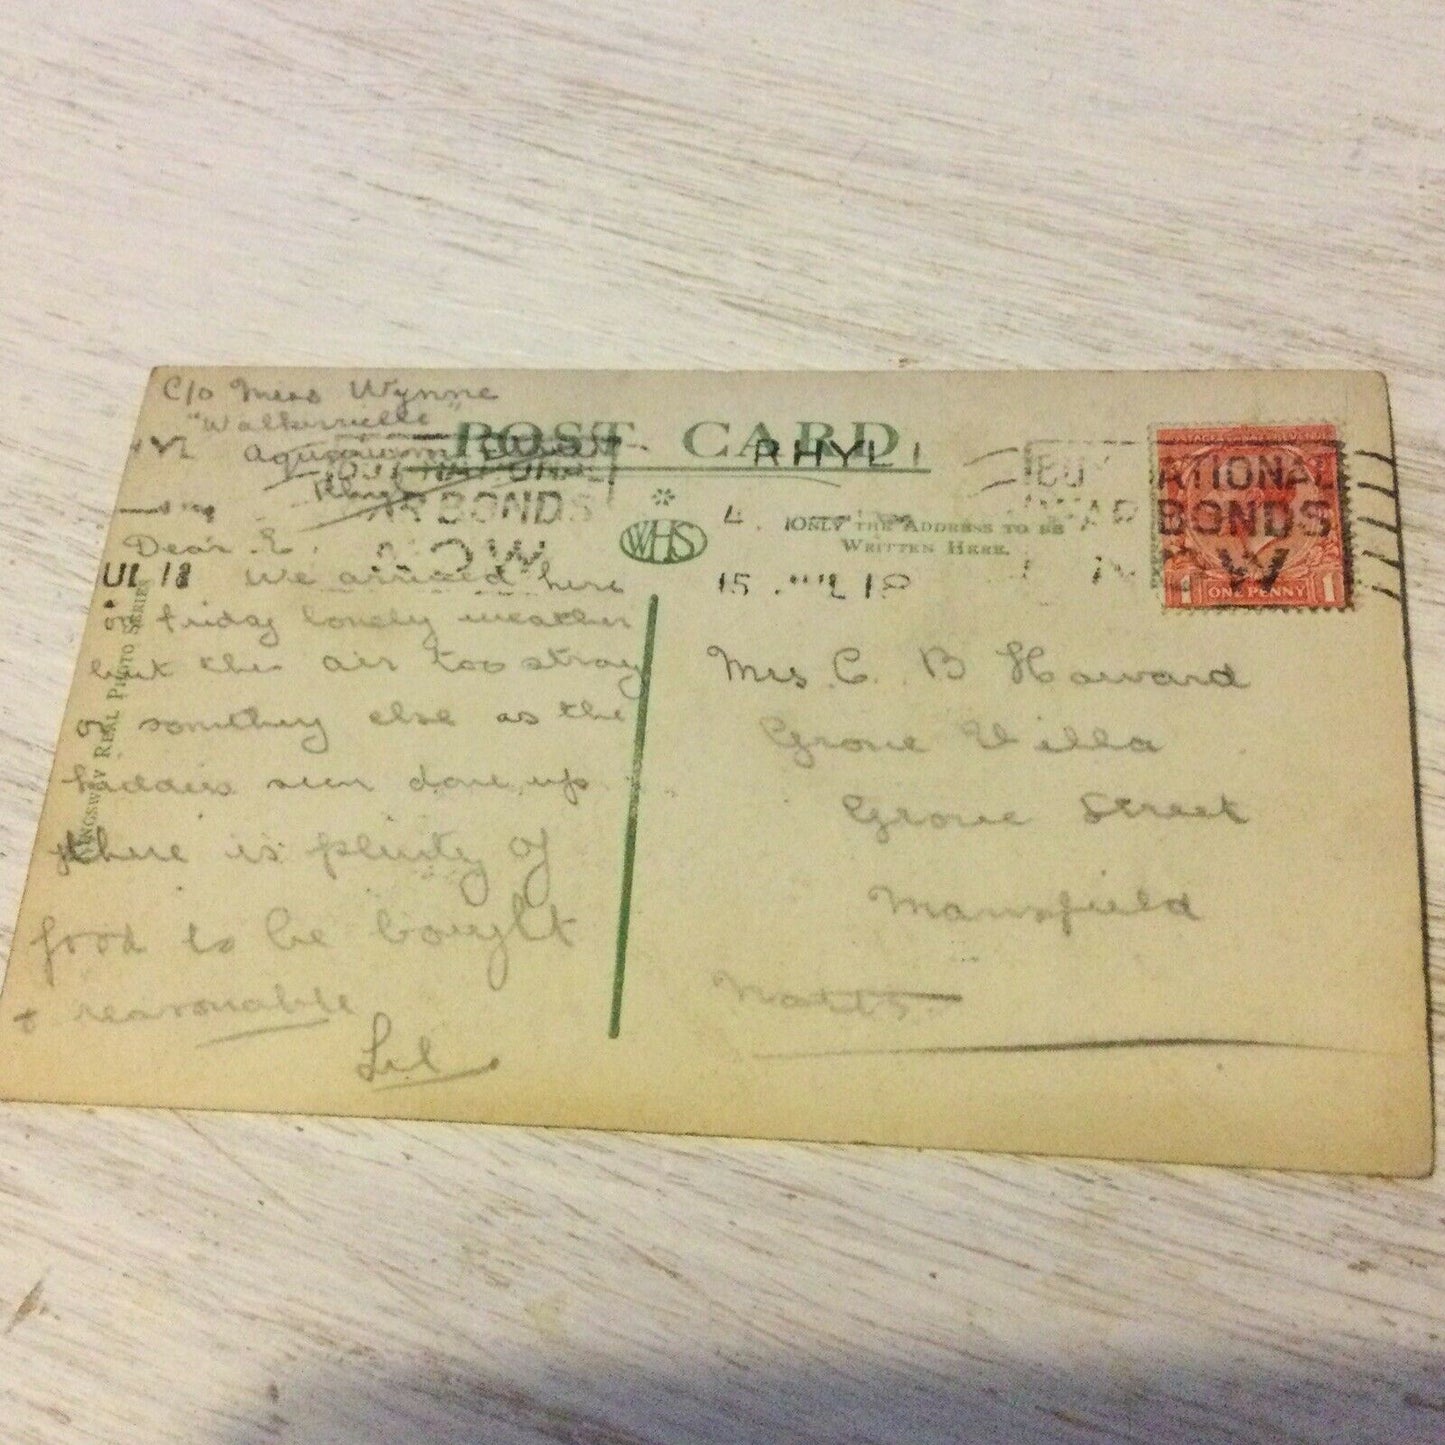 C/o Miss Wynne
"Walkerville"
POST CARD
RHYL
15 JUL 18
BUY NATIONAL
WAR BONDS
NOW
NATIONAL
WAR BONDS
NOW
JUL 18
ONE PENNY
1 1
WHS
ONLY THE ADDRESS TO BE
WRITTEN HERE.
KINGSWAY REAL PHOTO SERIES
Dear E.
We arrived here
friday lovely weather
but the air too strong
or something else as the
kiddies
there is plenty of
food to be bought
& reasonable
Lil
Mrs C. B Howard
Grove Villa
Grove Street
Mansfield
Notts.